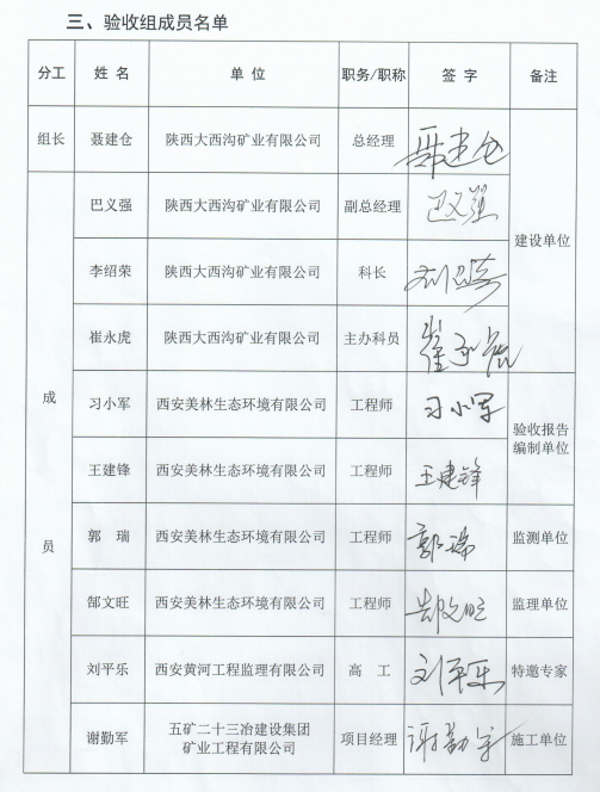 三、验收组成员名单
分工 姓 名 单 位 职务/职称 签 字 备注
组长 聂建仓 陕西大西沟矿业有限公司 总经理 聂建仓
巴义强 陕西大西沟矿业有限公司 副总经理 巴义强
建设单位
李绍荣 陕西大西沟矿业有限公司 科长
崔永虎 陕西大西沟矿业有限公司 主办科员 崔永虎
成
习小军 西安美林生态环境有限公司 工程师 习小军
验收报告
编制单位
王建锋 西安美林生态环境有限公司 工程师 王建锋
员
郭 瑞 西安美林生态环境有限公司 工程师 郭瑞 监测单位
郜文旺 西安美林生态环境有限公司 工程师 郜文旺 监理单位
刘平乐 西安黄河工程监理有限公司 高 工 刘平乐 特邀专家
谢勤军 五矿二十三冶建设集团
矿业工程有限公司 项目经理 谢勤军 施工单位